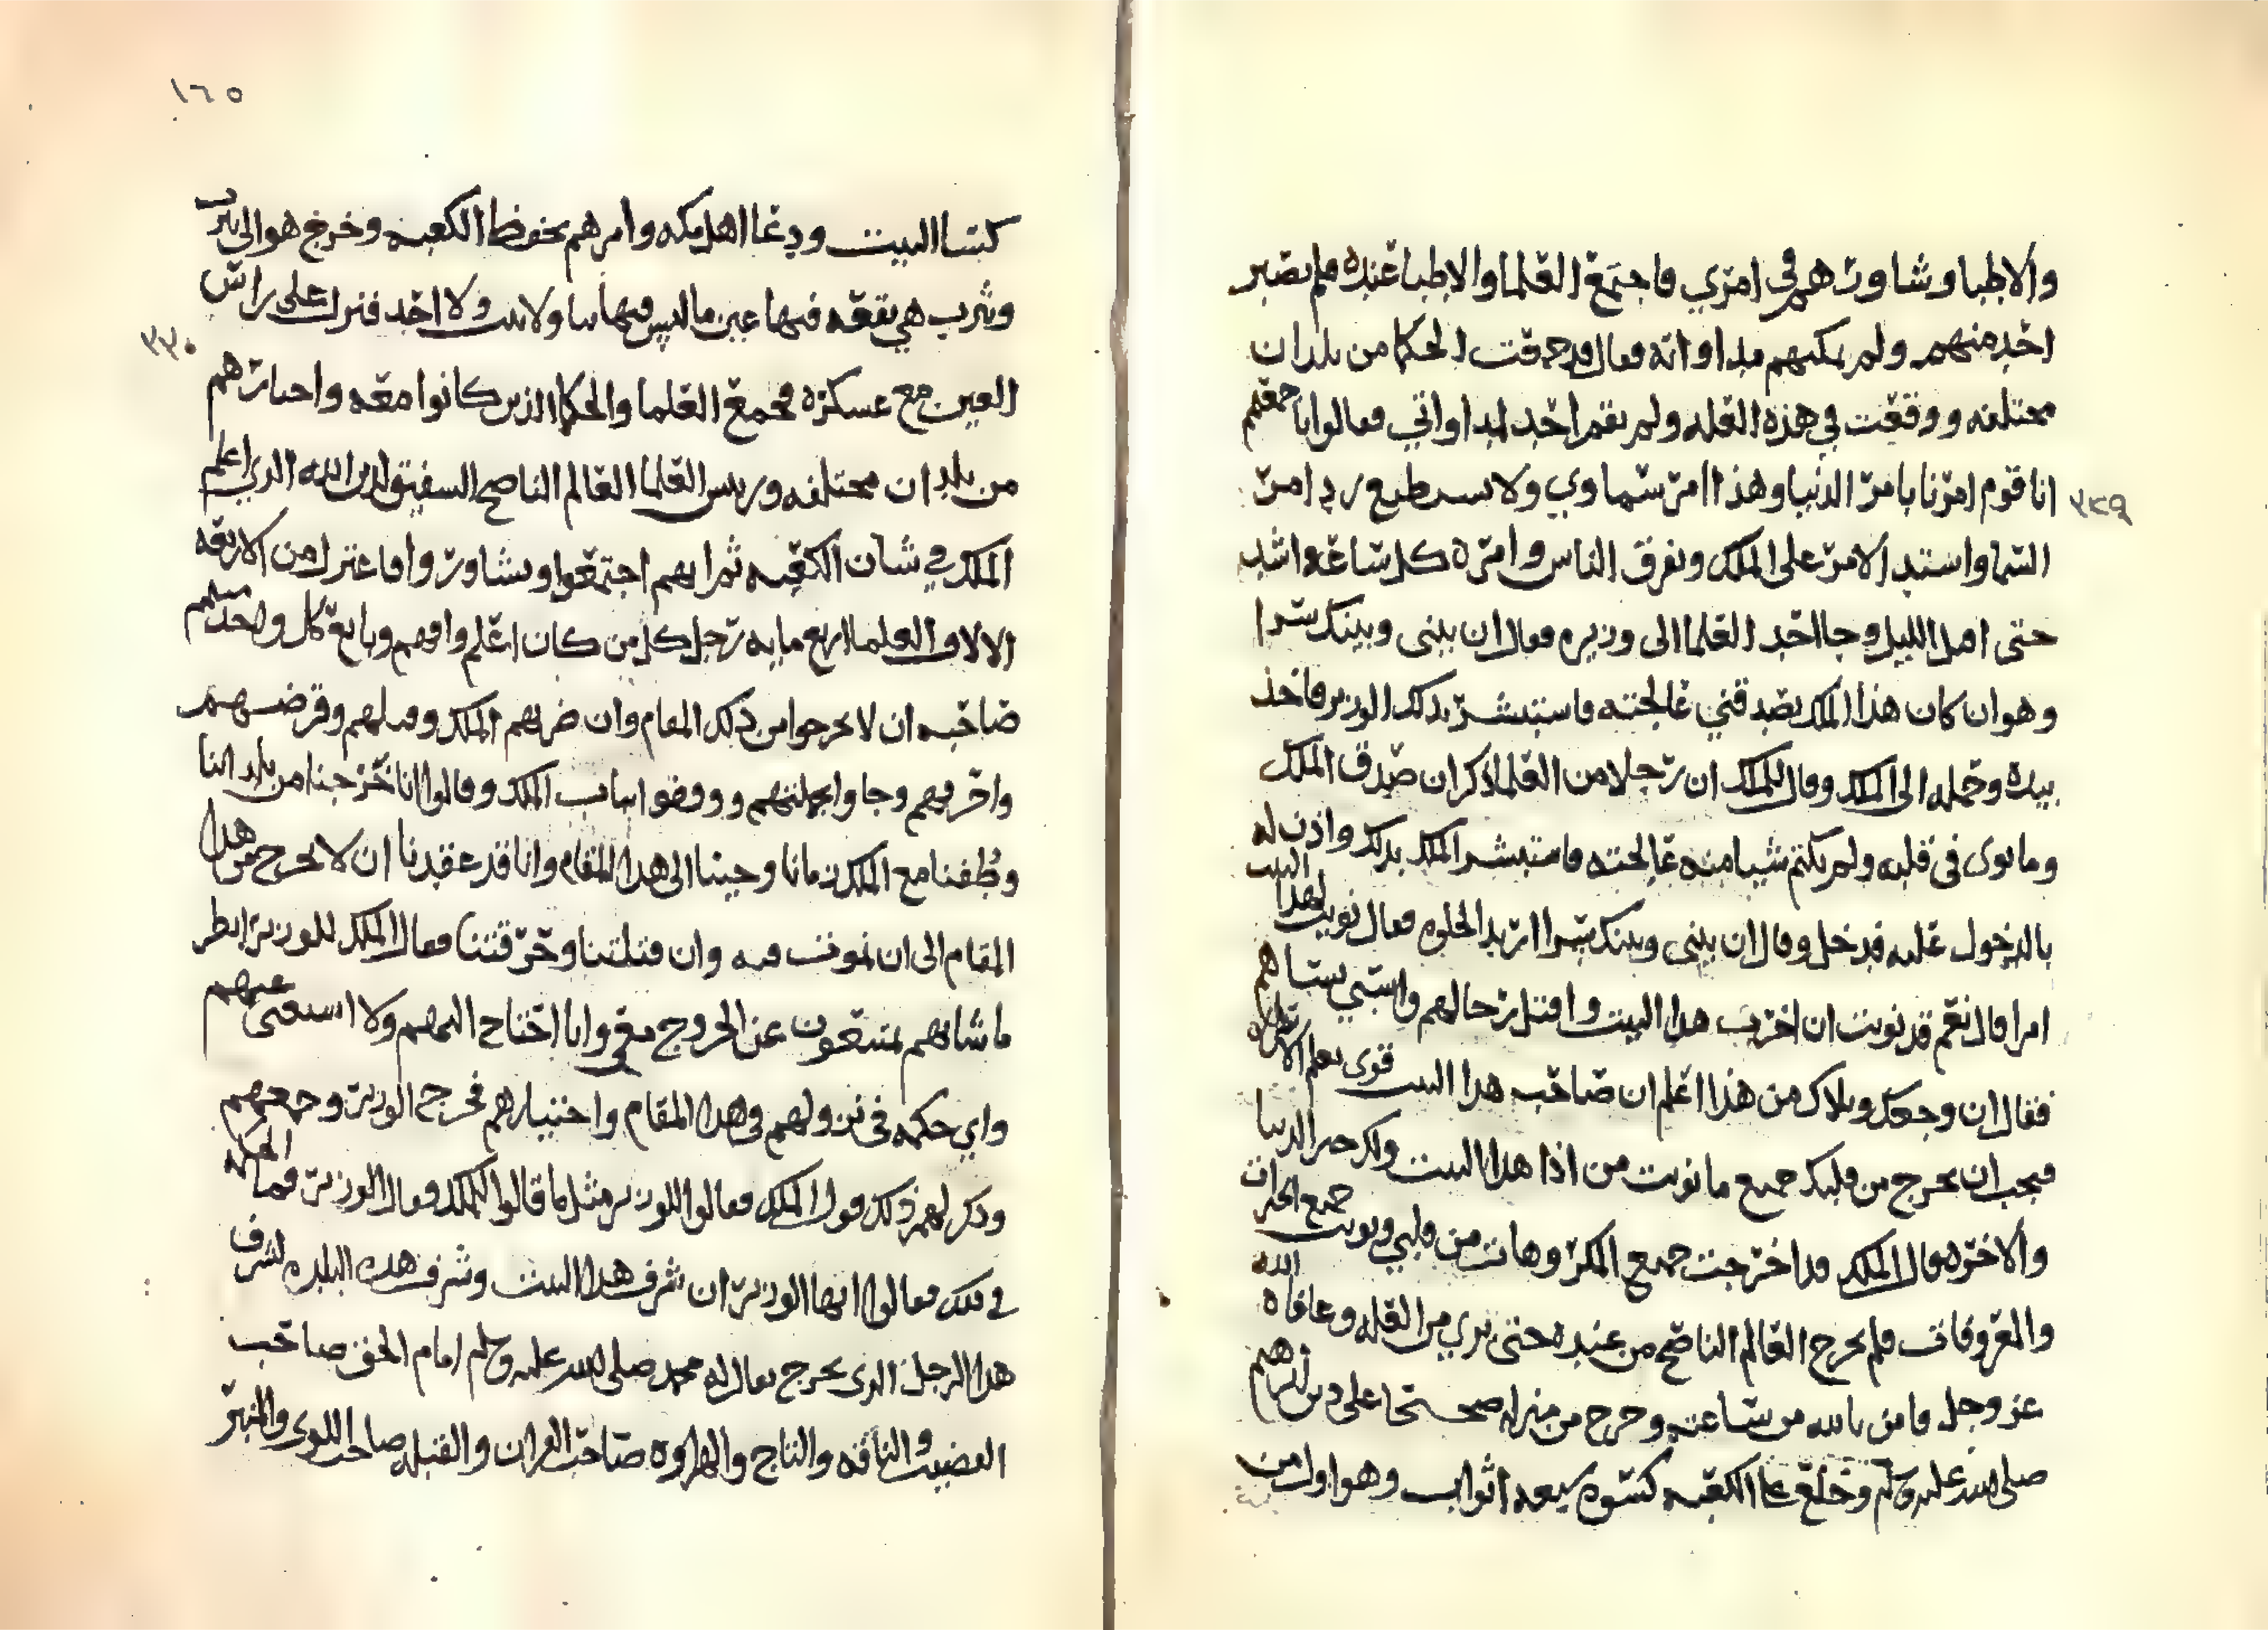 والاطبا وشاورهم في امري فاجتمع العلما والاطبا عنده فلم يصبر
احد منهم ولم يمكنهم مداواته فقال قد جمعت الحكما من بلدان
مختلفه ووقعت في هذه العله ولم يقم احد لمداواتي فقالوا باجمعهم
انا قوم امرنا بامر الدنيا وهذا امر سماوي ولا نستطيع رد امر
٣٢٩
السما واشتد الامر على الملك وتفرق الناس وامره كل ساعه اشد
حتى اقبل الليل وجا احد العلما الى وزيره فقال ان بيني وبينك سرا
وهو ان كان هذا الملك يصدقني عالجته فاستبشر بذلك الوزير فاخذ
بيده وحمله الى الملك وقال للملك ان رجلا من العلما ذكر ان صدق الملك
وما نوى في قلبه ولم يكتم شيا منه عالجته فاستبشر الملك بذلك واذن له
بالدخول عليه فدخل وقال ان بيني وبينك سرا اريد الخلوه فقال نويت لهذا البيت
امرا قال نعم قد نويت ان اخرب هذا البيت واقتل رجالهم واستبي نساهم
فقال ان وجعك وبلاك من هذا اعلم ان صاحب هذا البيت قوى يعلم الاسرار
فيجب ان يخرج من قلبك جميع ما نويت من اذا هذا البيت ولك خير الدنيا
والاخره قال الملك قد اخرجت جميع المكر وهات من قلبي ونويت جميع الخيرات
والمعروفات فلم يخرج العالم الناصح من عنده حتى بري من العله وعافاه الله
عز وجل فامن بالله من ساعته وخرج من منزله صحيحا على دين ابرهيم
صلى الله عليه وسلم وخلع على الكعبه كسوه سبعه اثواب وهو اول من
١٦٥
كسا البيت ودعا اهل مكه وامرهم بحفظ الكعبه وخرج هو الى يثرب
ويثرب هي بقعه فيها عين ما ليس فيها بنا ولا بيت ولا احد فنزل على راس
٣٣٠
العين مع عسكره فجمع العلما والحكما الذين كانوا معه واختارهم
من بلدان مختلفه ورييس العلما العالم الناصح الشفيق لدين الله الذي اعلم
الملك في شان الكعبه ثم انهم اجتمعوا وتشاوروا فاعتزل من الاربعه
الالاف العلما اربع مايه رجل كل من كان اعلم وافهم وبايع كل واحد منهم
صاحبه ان لا يخرجوا من ذلك المقام وان ضربهم الملك وقتلهم وقرضهم
واحرقهم وجاوا بجملتهم ووقفوا بباب الملك وقالوا انا خرجنا من بلداننا
وطفنا مع الملك زمانا وجينا الى هذا المقام وانا قد عقدنا ان لا نخرج من هذا
المقام الى ان نموت فيه وان قتلتنا وحرقتنا فقال الملك للوزير انظر
ما شانهم يمتنعون عن الخروج معي وانا احتاج اليهم ولا استغنى عنهم
واي حكمه في نزولهم في هذا المقام واختيارهم فخرج الوزير وجمعهم
وذكر لهم ذلك قول الملك فقالوا للوزير مثل ما قالوا للملك فقال الوزير فما الحكمه
في ذلك فقالوا ايها الوزير ان شرف هذا البيت وشرف هذه البلده بشرف
هذا الرجل الذي يخرج يقال له محمد صلى الله عليه وسلم امام الحق صاحب
القضيب والناقه والتاج والهراوه صاحب القران والقبله صاحب اللوى والمنبر